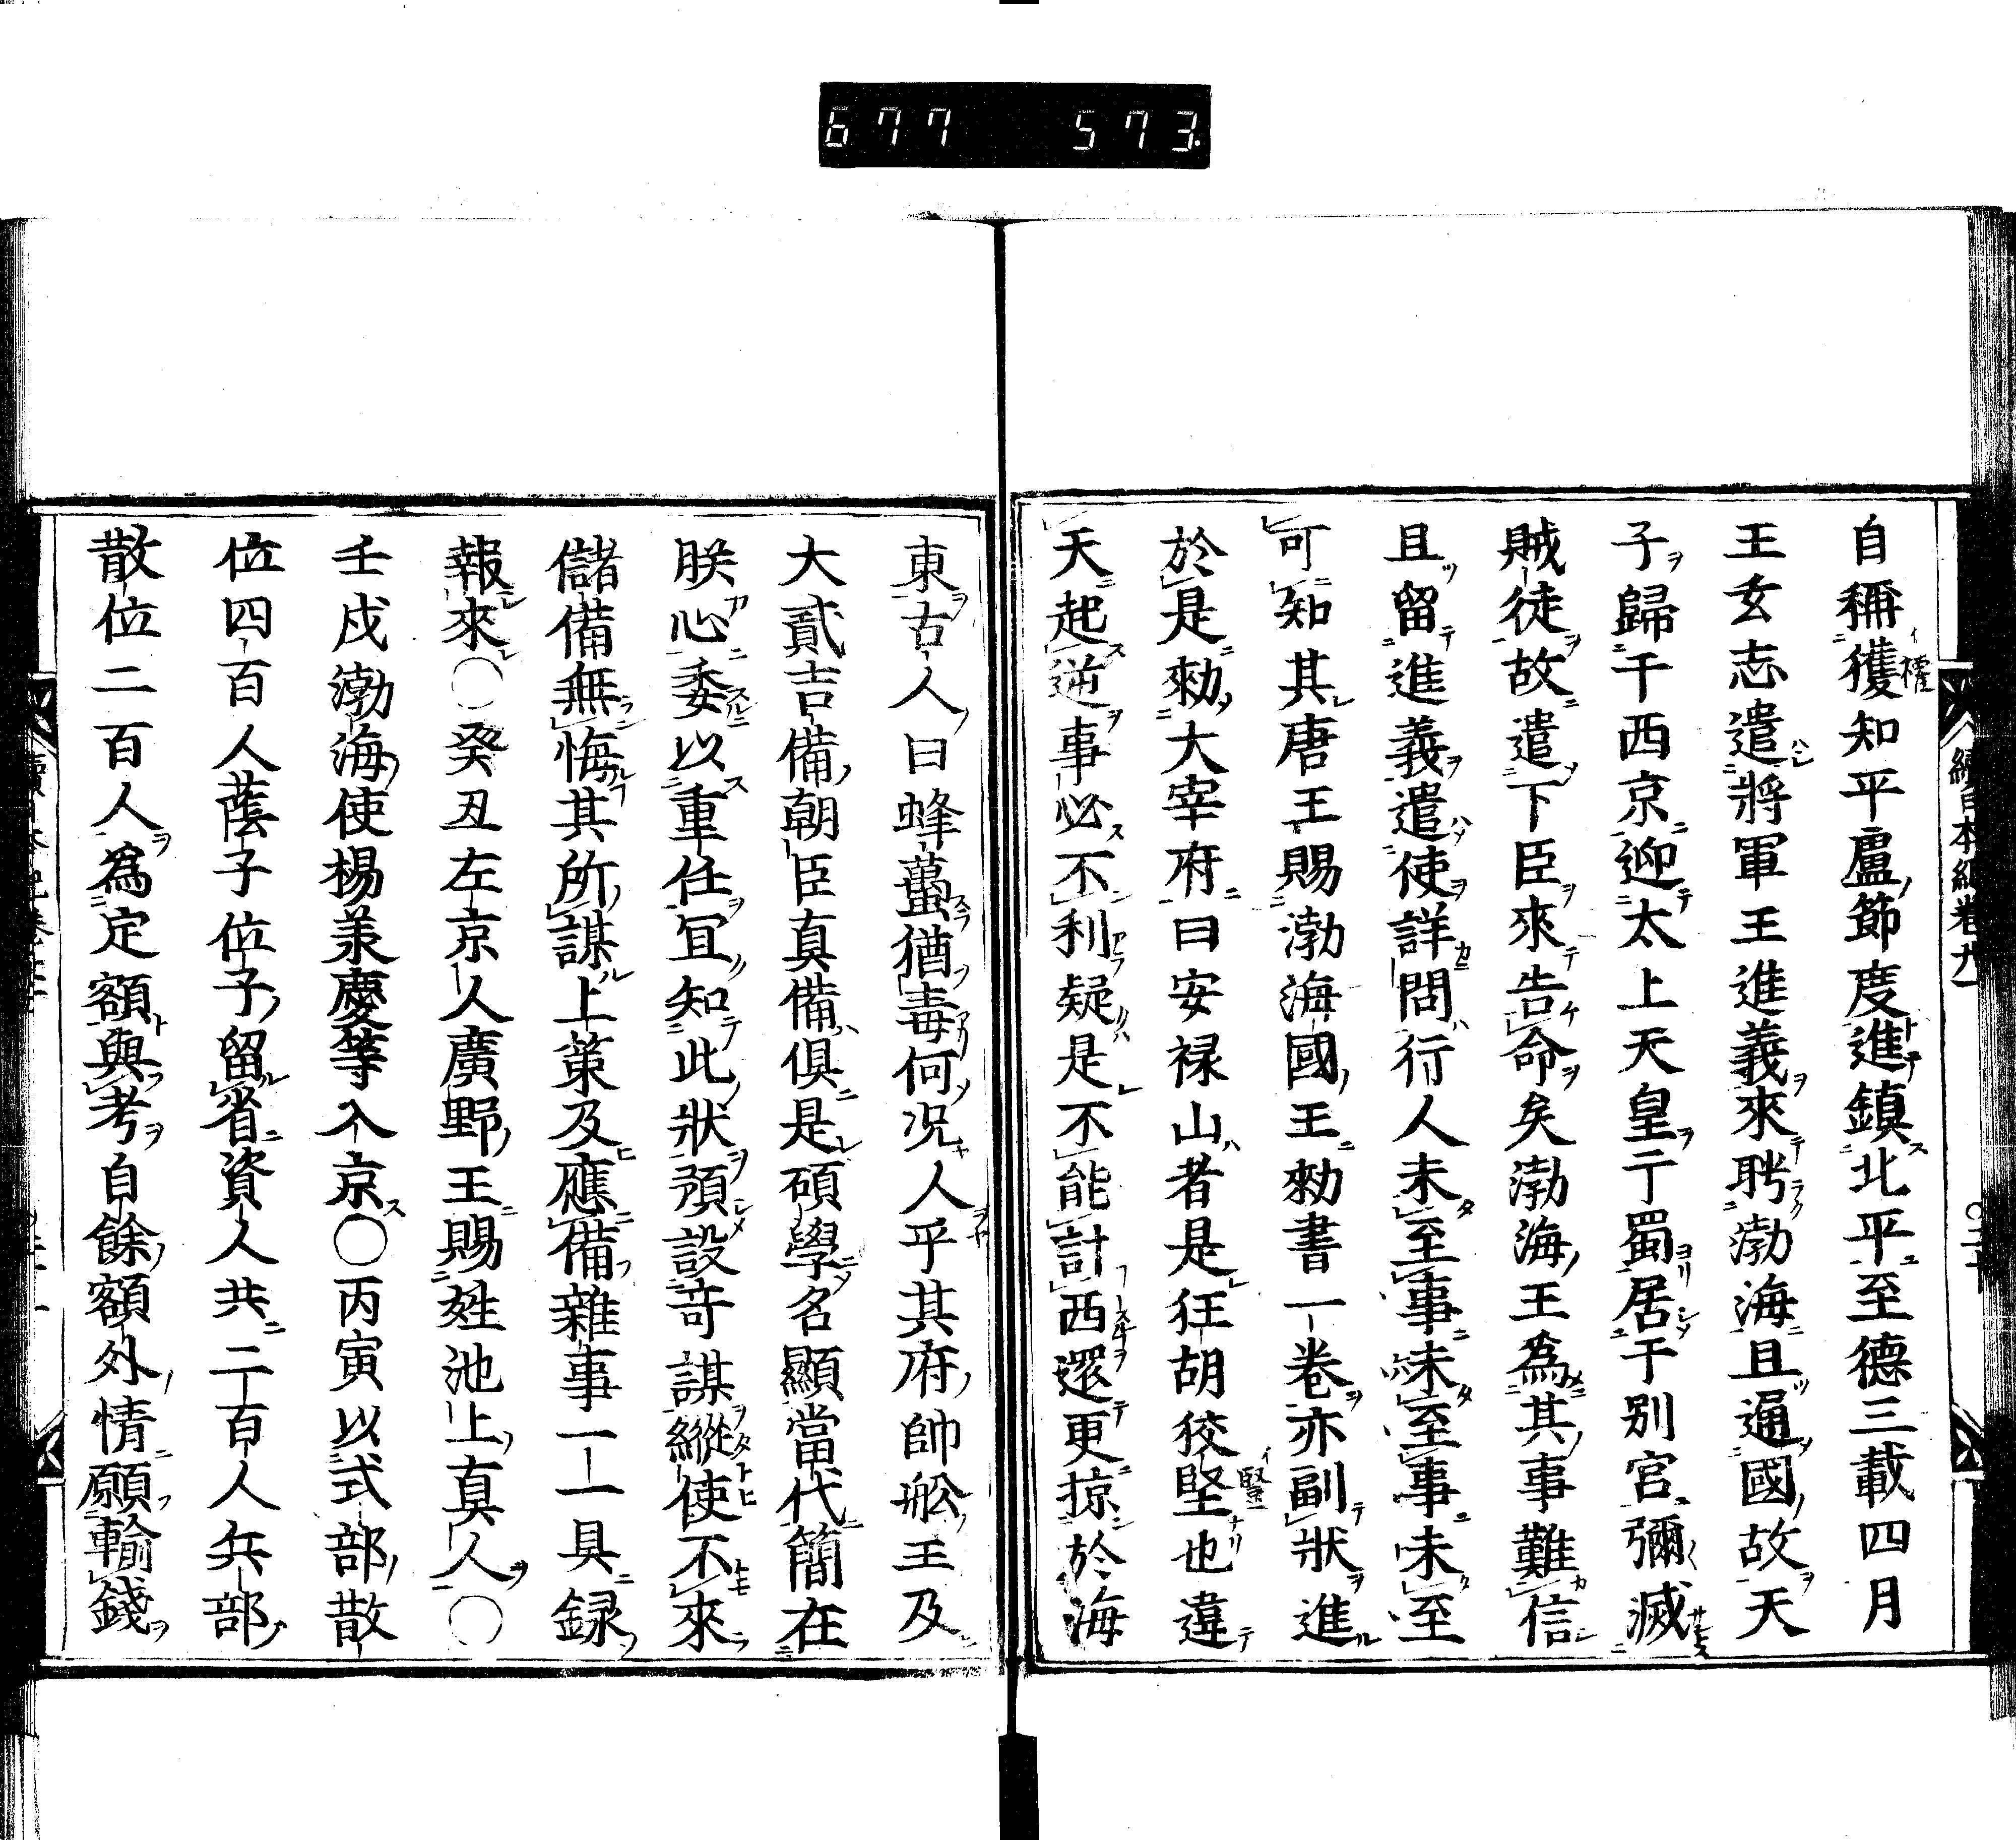 677 573.
續日本紀卷廿一
自稱獲知平盧節度進鎮北平至德三載四月
イ權
王玄志遣將軍王進義來聘渤海且通國故天
子歸于西京迎太上天皇于蜀居于別宮彌滅
賊徒故遣下臣來告命矣渤海王為其事難信
且留進義遣使詳問行人未至事未至事未至
可知其唐王賜渤海國王勅書一卷亦副狀進
於是勅大宰府曰安禄山者是狂胡狡堅也違
イ豎
天起逆事必不利疑是不能計西還更掠於海
東古人曰蜂蠆猶毒何況人乎其府帥舩王及
大貳吉備朝臣真備俱是碩學名顯當代簡在
朕心委以重任冝知此狀預設竒謀縱使不來
儲備無悔其所謀上策及應備雜事一一具録
報來〇癸丑左京人廣野王賜姓池上真人〇
壬戌渤海使楊羕慶等入京〇丙寅以式部散
位四百人蔭子位子留省資人共二百人兵部
散位二百人為定額與考自餘額外情願輸錢